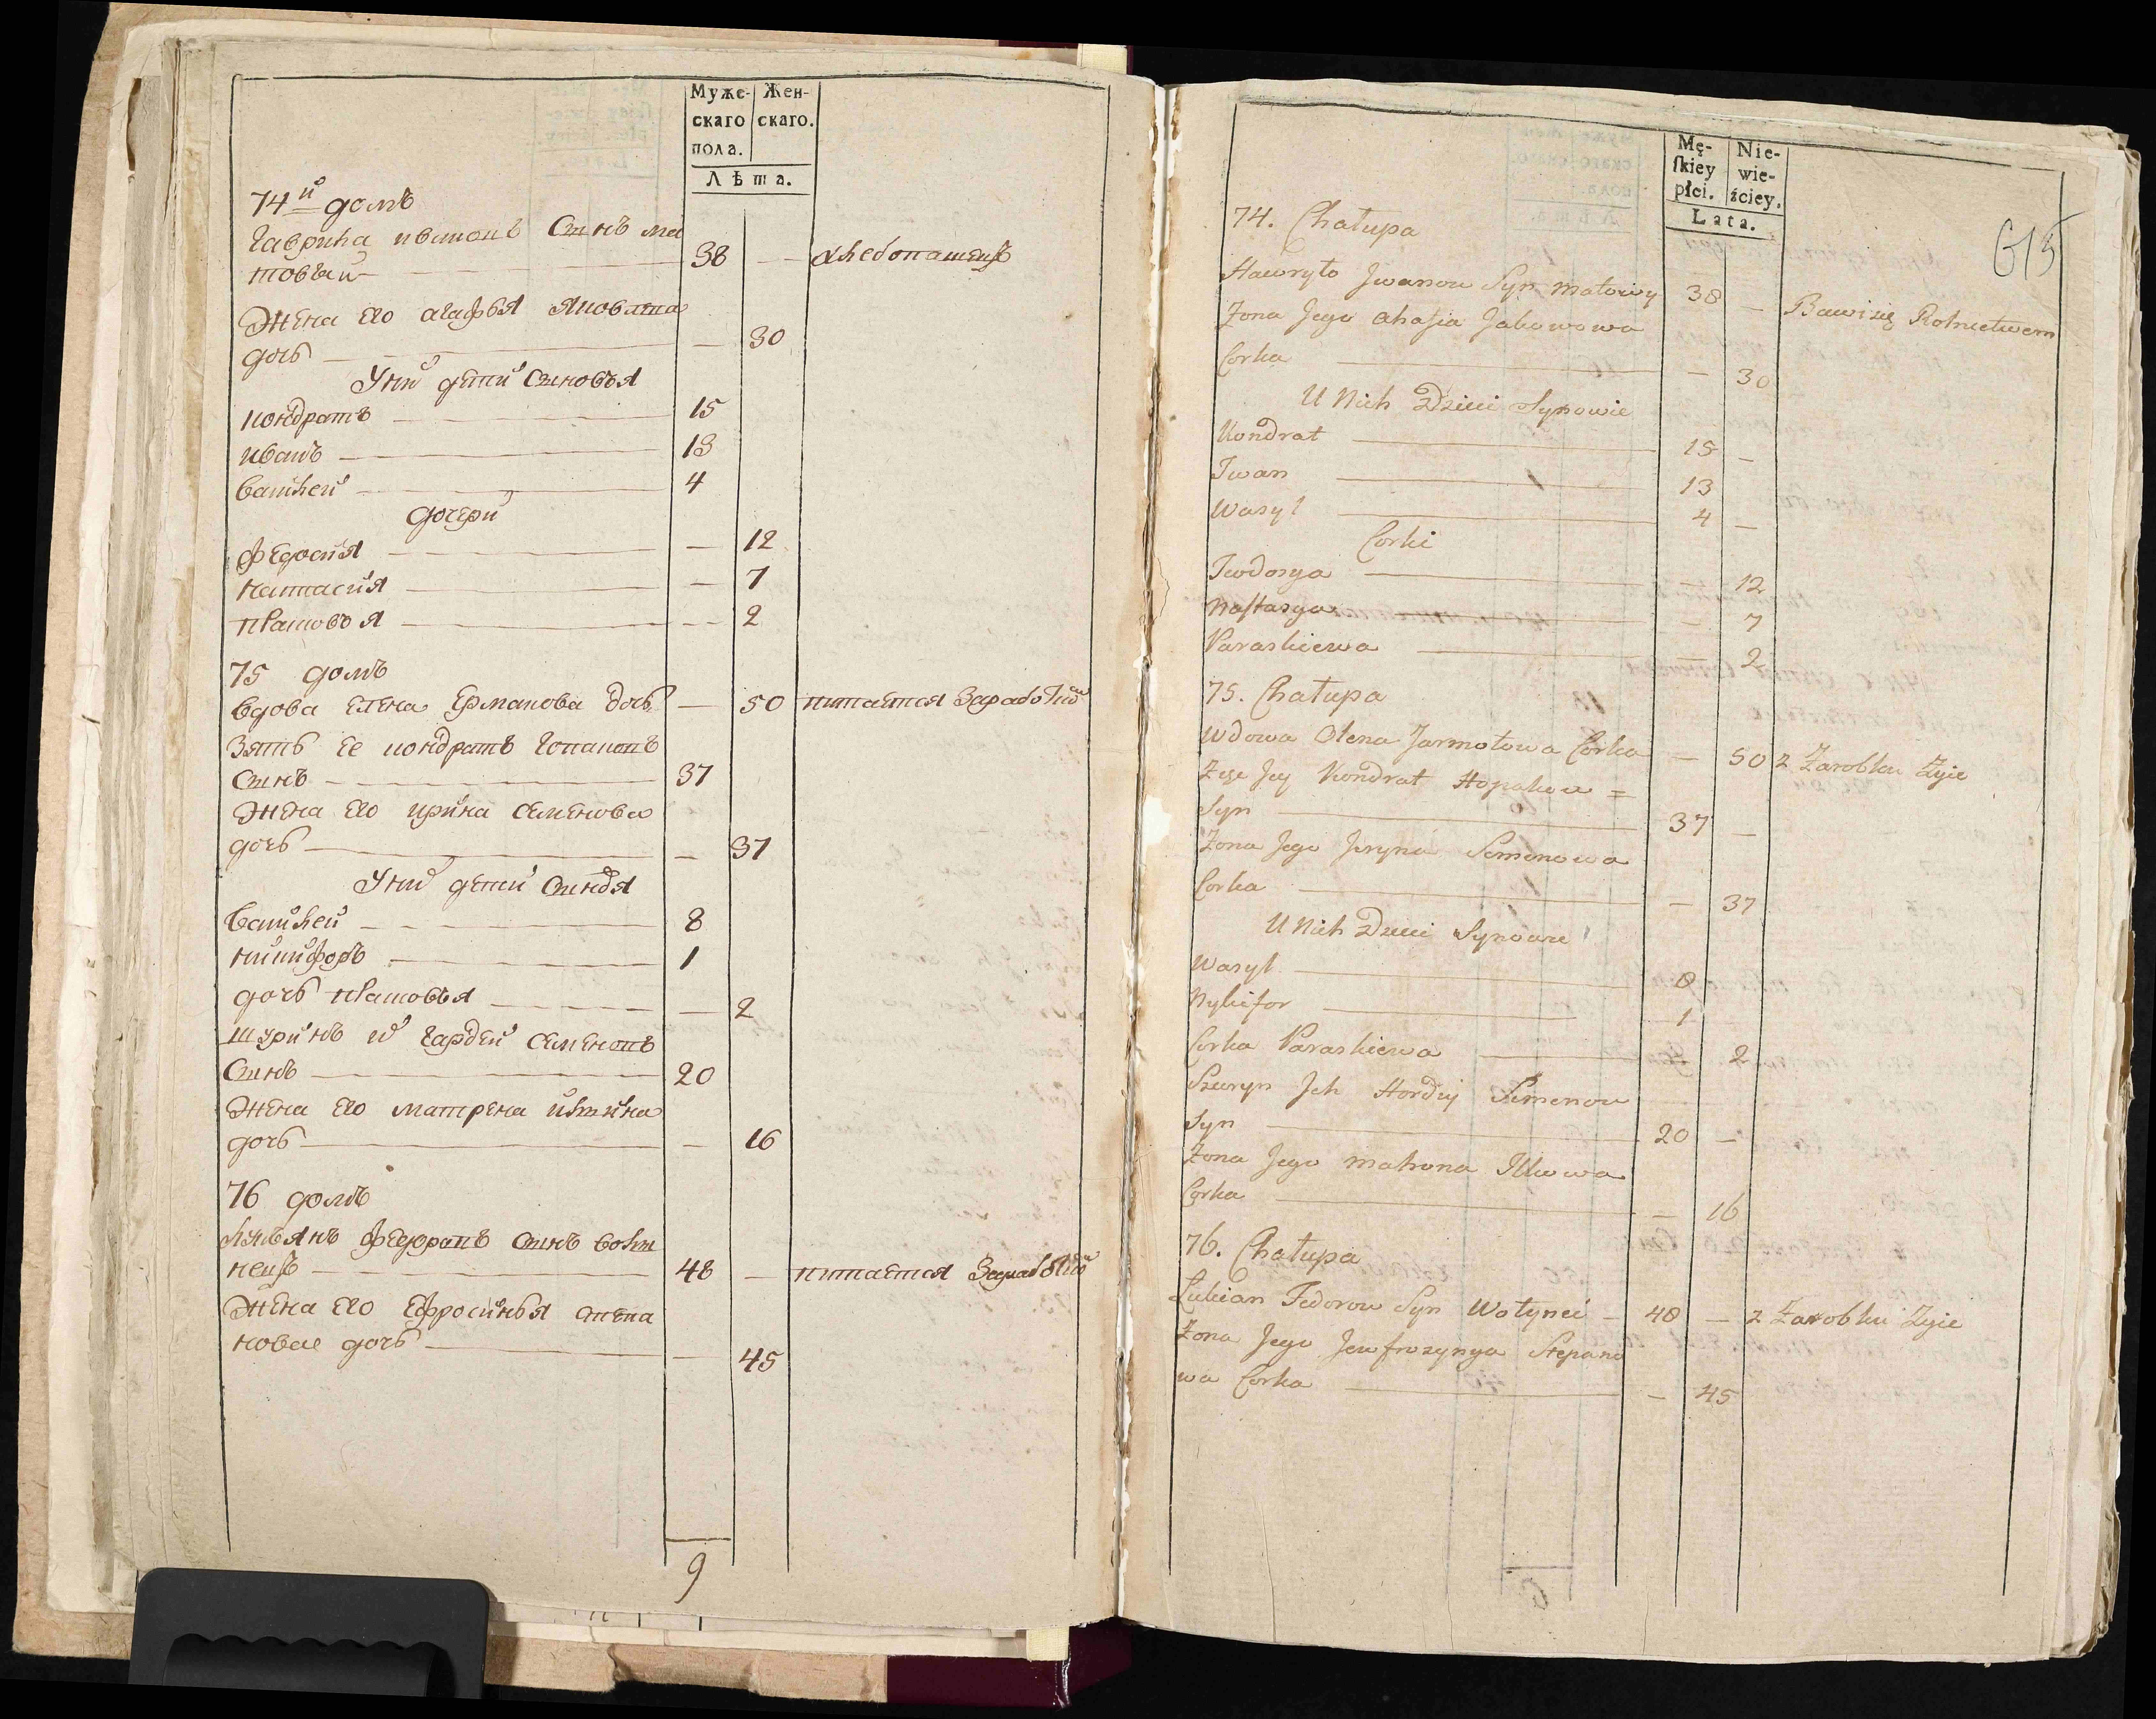 Муже- Жен-
скаго скаго.
пола.
Лѣта.
74й домъ
Гаврила ивановъ Сынъ ма
товый 38 — хлебопашецъ
Жена Его агафья Яковлева
дочь — 30
У них дети Сыновья
кондратъ 15
иванъ 13
василей 4
дочери
федосия — 12
настасия — 7
прасковья — 2
75 домъ
вдова елена Ермакова дочь — 50 питается Заработком
Зять Ее кондратъ
Сынъ 37
Жена Его ирина Семенова
дочь — 37
У них дети Сыновья
василей 8
никифоръ 1
дочь прасковья — 2
шуринъ их гардей Семеновъ
Сынъ 20
Жена Его матрена
дочь — 16
76 домъ
лукьянъ федоровъ Сынъ волы
нецъ 48 — питается Заработком
Жена Его Ефросинья степа
нова дочь — 45
9
Mę- Nie-
skiey wie-
płci. ściey.
Lata.
615
74. Chałupa
Hawryło Jwanow Syn Matowy 38 — Bawi się Rolnictwem
Żona Jego Ahafia Jakowowa
Corka — 30
U Nich Dzieci Synowie
Kondrat 15 —
Iwan 13
Wasyl 4 —
Corki
Feodosya — 12
Nastasya — 7
Paraskiewa — 2
75. Chałupa
Wdowa Olena Jarmołowa Corka — 50 z Zarobku Żyie
Zięć Jey Kondrat Hopakow =
Syn 37 —
Żona Jego Jeryna Semenowa
Corka — 37
U Nich Dzieci Synowie
Wasyl 8
Nykifor 1
Corka Paraskiewa 2
Szuryn Jch Hordiy Semenow
Syn 20 —
Żona Jego Matrona Ilkowa
Corka — 16
76. Chałupa
Łukian Fedorow Syn Wołyneć — 48 — z Zarobku Żyie
Żona Jego Jewfrozynya Stepano
wa Corka — 45